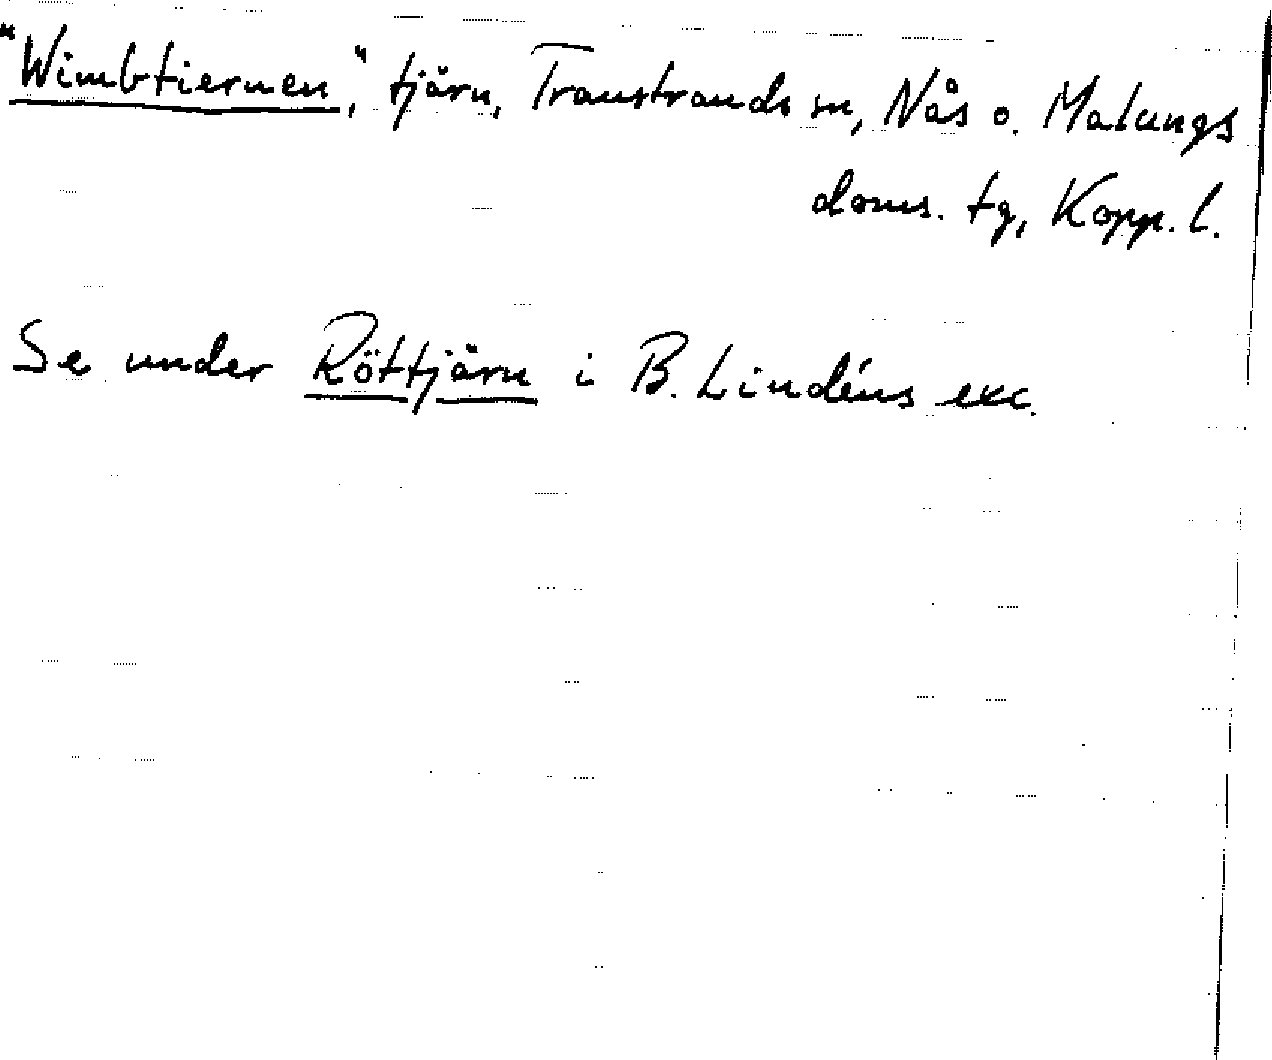 "Wimbtiernen", tjärn, Transtrands sn, Nås o. Malungs
doms. tg, Kopp. l.
Se under Röttjärn i B. Lindéns exc.